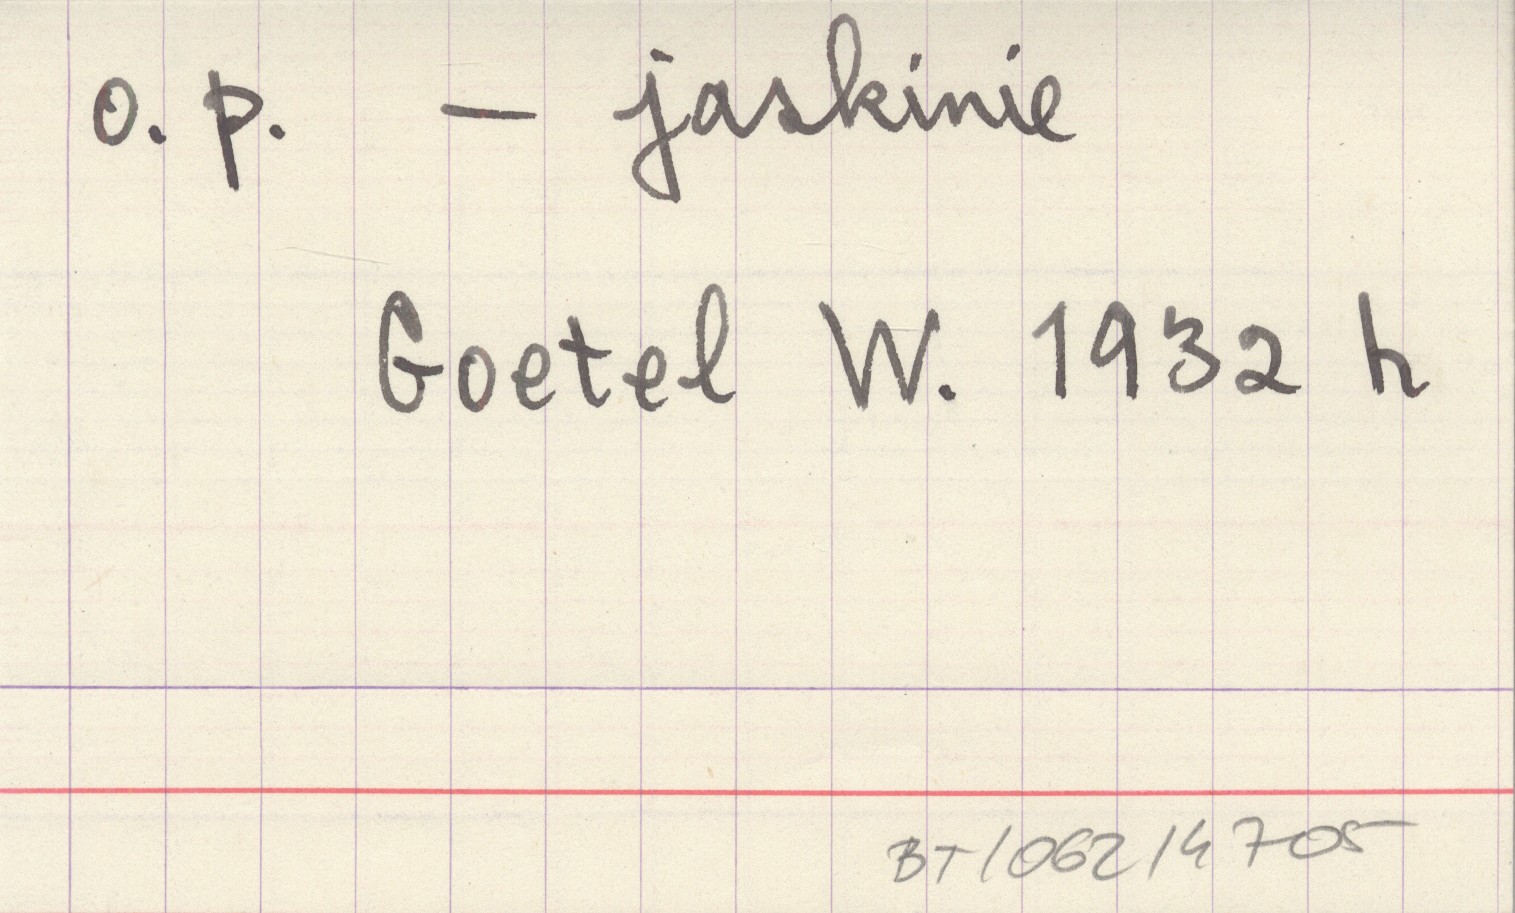 o. p. — jaskinie
Goetel W. 1932 h
BT/062/4705